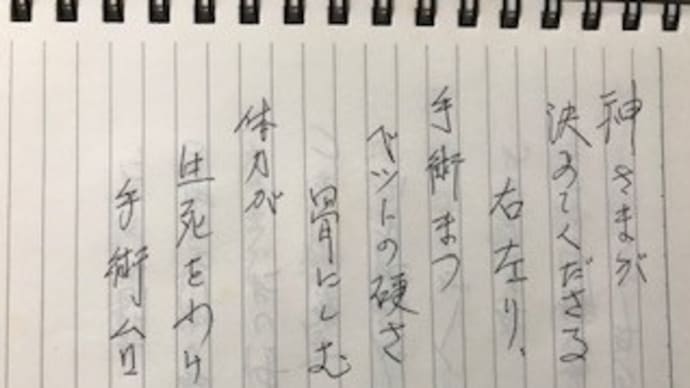 神さまが
決めてくださる
右左り、
手術まつ
ベットの硬さ
骨にしむ
体力が
生死をわけ
手術台